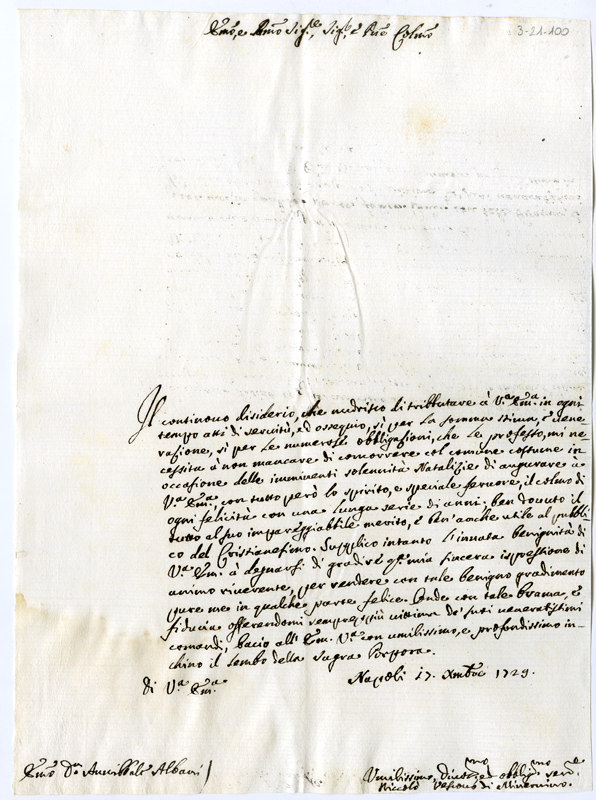 Emo, e Rmo Sig.re, Sig.r e Pne Colmo
3-21-100
Il continuo disiderio, che nudrisco di tributare à V.a Em.a in ogni
tempo atti di servitù, ed ossequio, sì per la somma stima, e vene-
razione, sì per le numerose obbligazioni, che le professo, mi ne-
cessita à non mancare di concorrere col comune costume in
occasione delle imminenti solennità Natalizie di augurare a
V.a Em.a, con tutto però lo spirito, e speciale fervore, il colmo di
ogni felicità con una lunga serie di anni; ben dovuto il
tutto al suo impareggiabile merito, e ben anche utile al pubbli-
co del Cristianesimo. Supplico intanto l'innata benignità di
V.a Em. à degnarsi di gradire q.a mia sincera espressione di
animo riverente, per rendere con tale benigno gradimento
pure me in qualche parte felice. Onde con tale brama, e
fiducia offerendomi sempre più a' de' suoi veneratissimi
comandi, bacio all' Em. V.a con umilissimo, e profondissimo in-
chino il lembo della Sagra Porpora.
di V.a Em.a
Napoli 17. Xmbre 1729.
Emo Dn Annibale Albani
Umilissimo, divotmo, ed obbligmo serve
Niccolò Vescovo di Minervino.